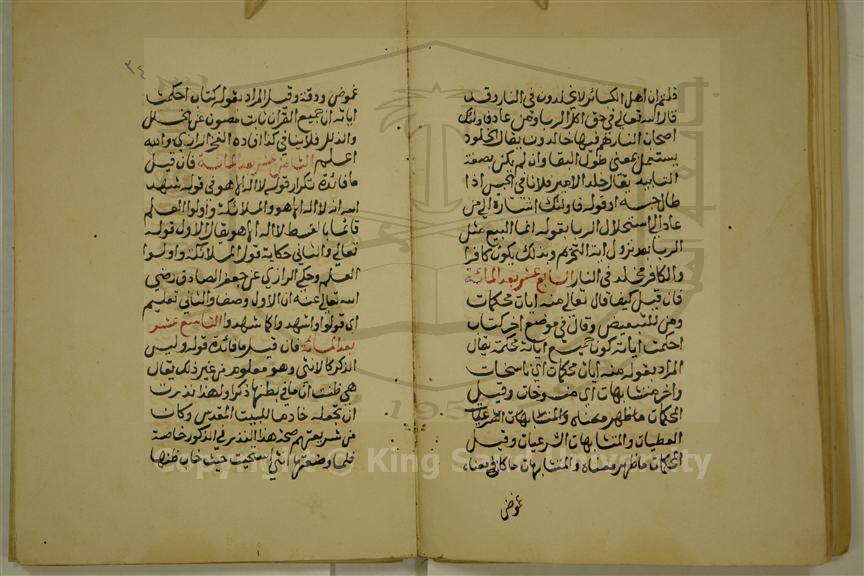 قلتم ان اهل الكبائر لا يخلدون في النار وقد
قال الله تعالى في حق اكل الربا ومن عاد فاولئك
اصحاب النار هم فيها خالدون يقال الخلود
يستعمل بمعنى طول البقا وان لم يكن بصفة
التابيد يقال خلد الامير فلانا في الحبس اذا
طال حبسه او قوله فاولئك اشارة الى من
عاد الى استحلال الربا بقوله انما البيع مثل
الربا بعد نزول اية التحريم وبذلك يكون كافرا
والكافر مخلد في النار السابع عشر بعد المائة
فان قيل كيف قال تعالى منه ايات محكمات
ومن للتبعيض وقال في موضع اخر كتاب
احكمت اياته كون جميع اياته محكمة يقال
المراد بقوله منه ايات محكمات اي ناسخات
واخر متشابهات اي منسوخات وقيل
المحكمات ما ظهر معناه والمتشابهات الشرعيات
العقليات والمتشابهات الشرعيات وقيل
المحكمات ما ظهر معناه والمتشابهات ما كان في معناه
غموض
٣٤
غموض ودقة وقيل المراد بقوله كتاب احكمت
اياته ان جميع القران ثابت مصون عن الخلل
والزلل فلا ينافي كذا افاده الفخر الرازي والله
اعلم الثامن عشر بعد المائة فان قيل
ما فائدة تكرار قوله لا اله الا هو في قوله شهد
الله انه لا اله الا هو والملائكة واولوا العلم
قائما بالقسط لا اله الا هو يقال الاول قوله
تعالى والثاني حكاية قول الملائكة واولوا
العلم وحكى الرازي عن جعفر الصادق رضي
الله تعالى عنه ان الاول وصف والثاني تعليم
اي قولوا واشهدوا كما شهدوا التاسع عشر
بعد المائة فان قيل ما فائدة قوله وليس
الذكر كالانثى وهو معلوم من غير ذلك يقال
هي ظنت ان ما في بطنها ذكرا ولهذا نذرت
ان تجعله خادما للبيت المقدس وكان
من شريعتهم صحة هذا النذر في الذكور خاصة
فلما وضعتها انثى استحيت حيث خاب ظنها
Copyright © King Saud University
1957